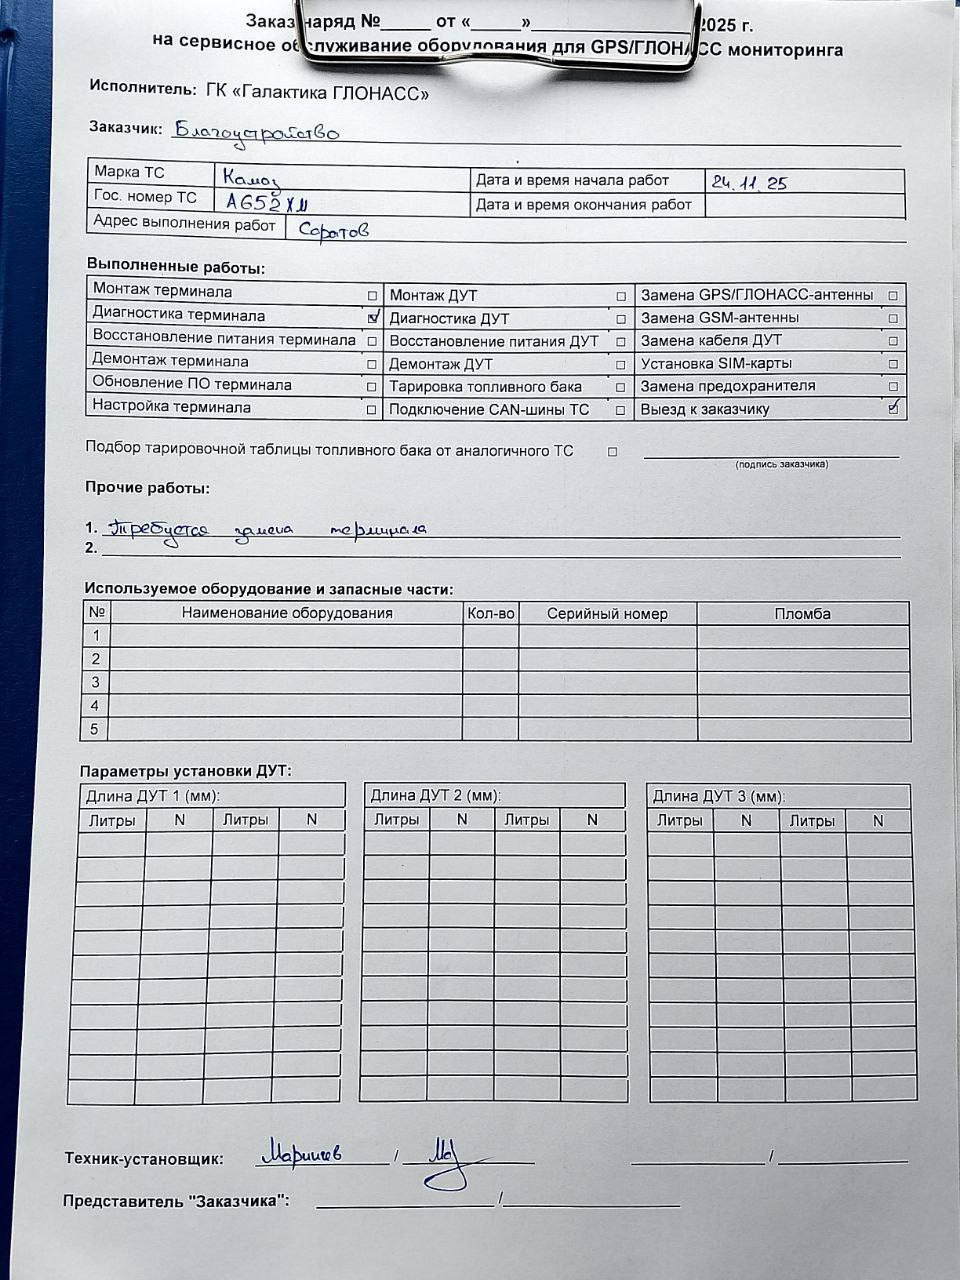 Заказ-наряд №_____ от «_____» 2025 г.
на сервисное обслуживание оборудования для GPS/ГЛОНАСС мониторинга
Исполнитель: ГК «Галактика ГЛОНАСС»
Заказчик: Благоустройство
Марка ТС Камаз Дата и время начала работ 24.11.25
Гос. номер ТС А652ХМ Дата и время окончания работ
Адрес выполнения работ Саратов
Выполненные работы:
Монтаж терминала ☐ Монтаж ДУТ ☐ Замена GPS/ГЛОНАСС-антенны ☐
Диагностика терминала ☑ Диагностика ДУТ ☐ Замена GSM-антенны ☐
Восстановление питания терминала ☐ Восстановление питания ДУТ ☐ Замена кабеля ДУТ ☐
Демонтаж терминала ☐ Демонтаж ДУТ ☐ Установка SIM-карты ☐
Обновление ПО терминала ☐ Тарировка топливного бака ☐ Замена предохранителя ☐
Настройка терминала ☐ Подключение CAN-шины ТС ☐ Выезд к заказчику ☑
Подбор тарировочной таблицы топливного бака от аналогичного ТС ☐
(подпись заказчика)
Прочие работы:
1. Требуется замена терминала
2.
Используемое оборудование и запасные части:
№ Наименование оборудования Кол-во Серийный номер Пломба
1
2
3
4
5
Параметры установки ДУТ:
Длина ДУТ 1 (мм): Длина ДУТ 2 (мм): Длина ДУТ 3 (мм):
Литры N Литры N Литры N Литры N Литры N Литры N
Техник-установщик: / /
Представитель "Заказчика": /